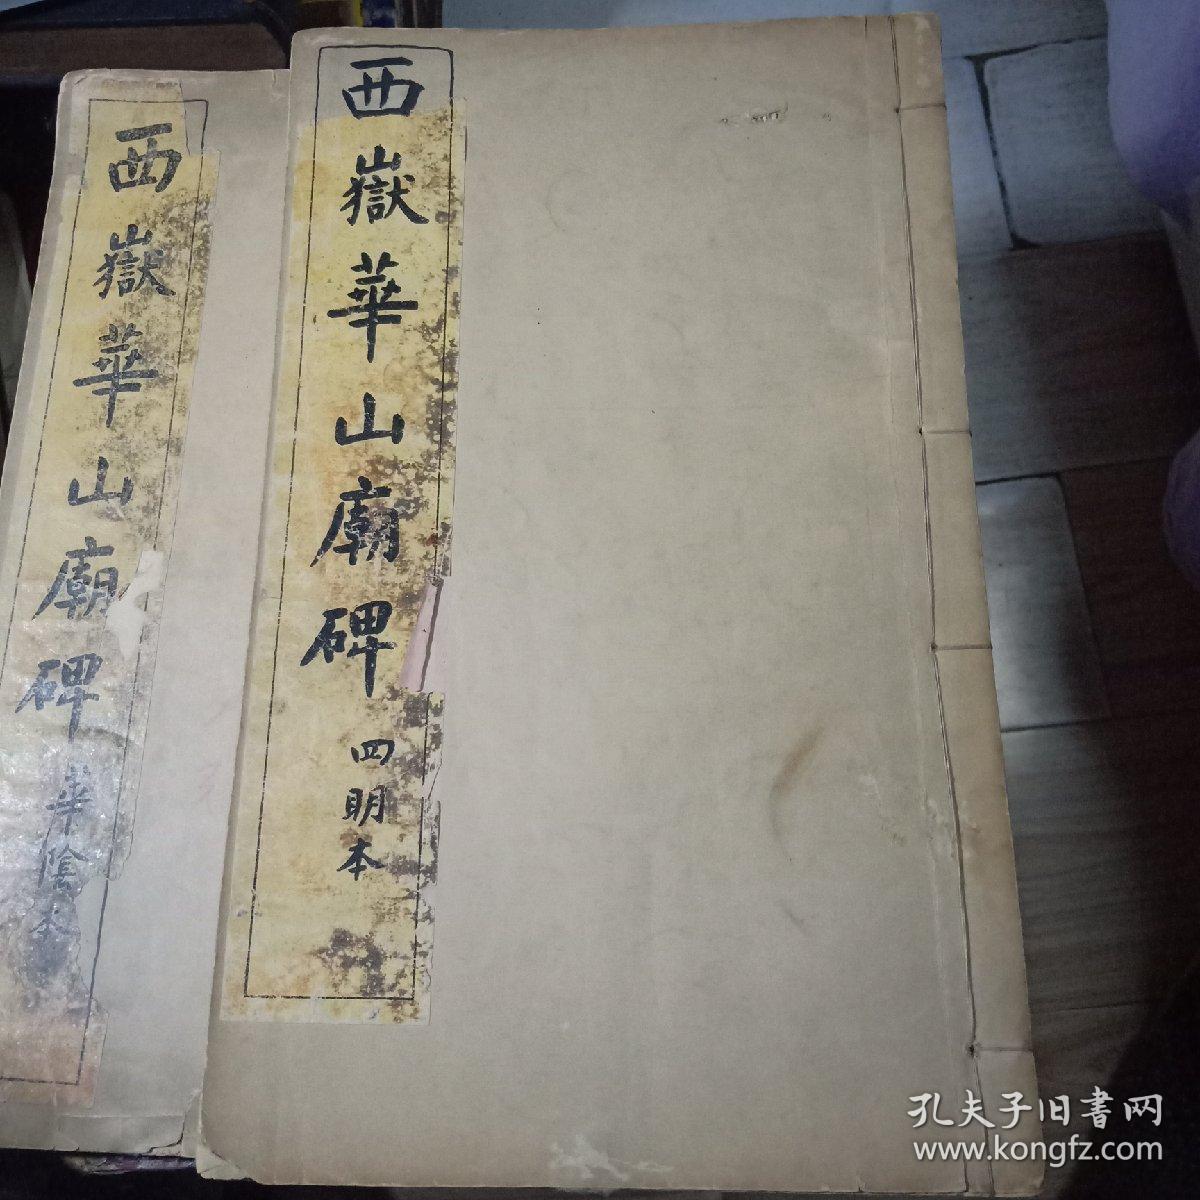 西嶽華山廟碑 四明本
西嶽華山廟碑 華陰本
孔夫子旧書网
www.kongfz.com